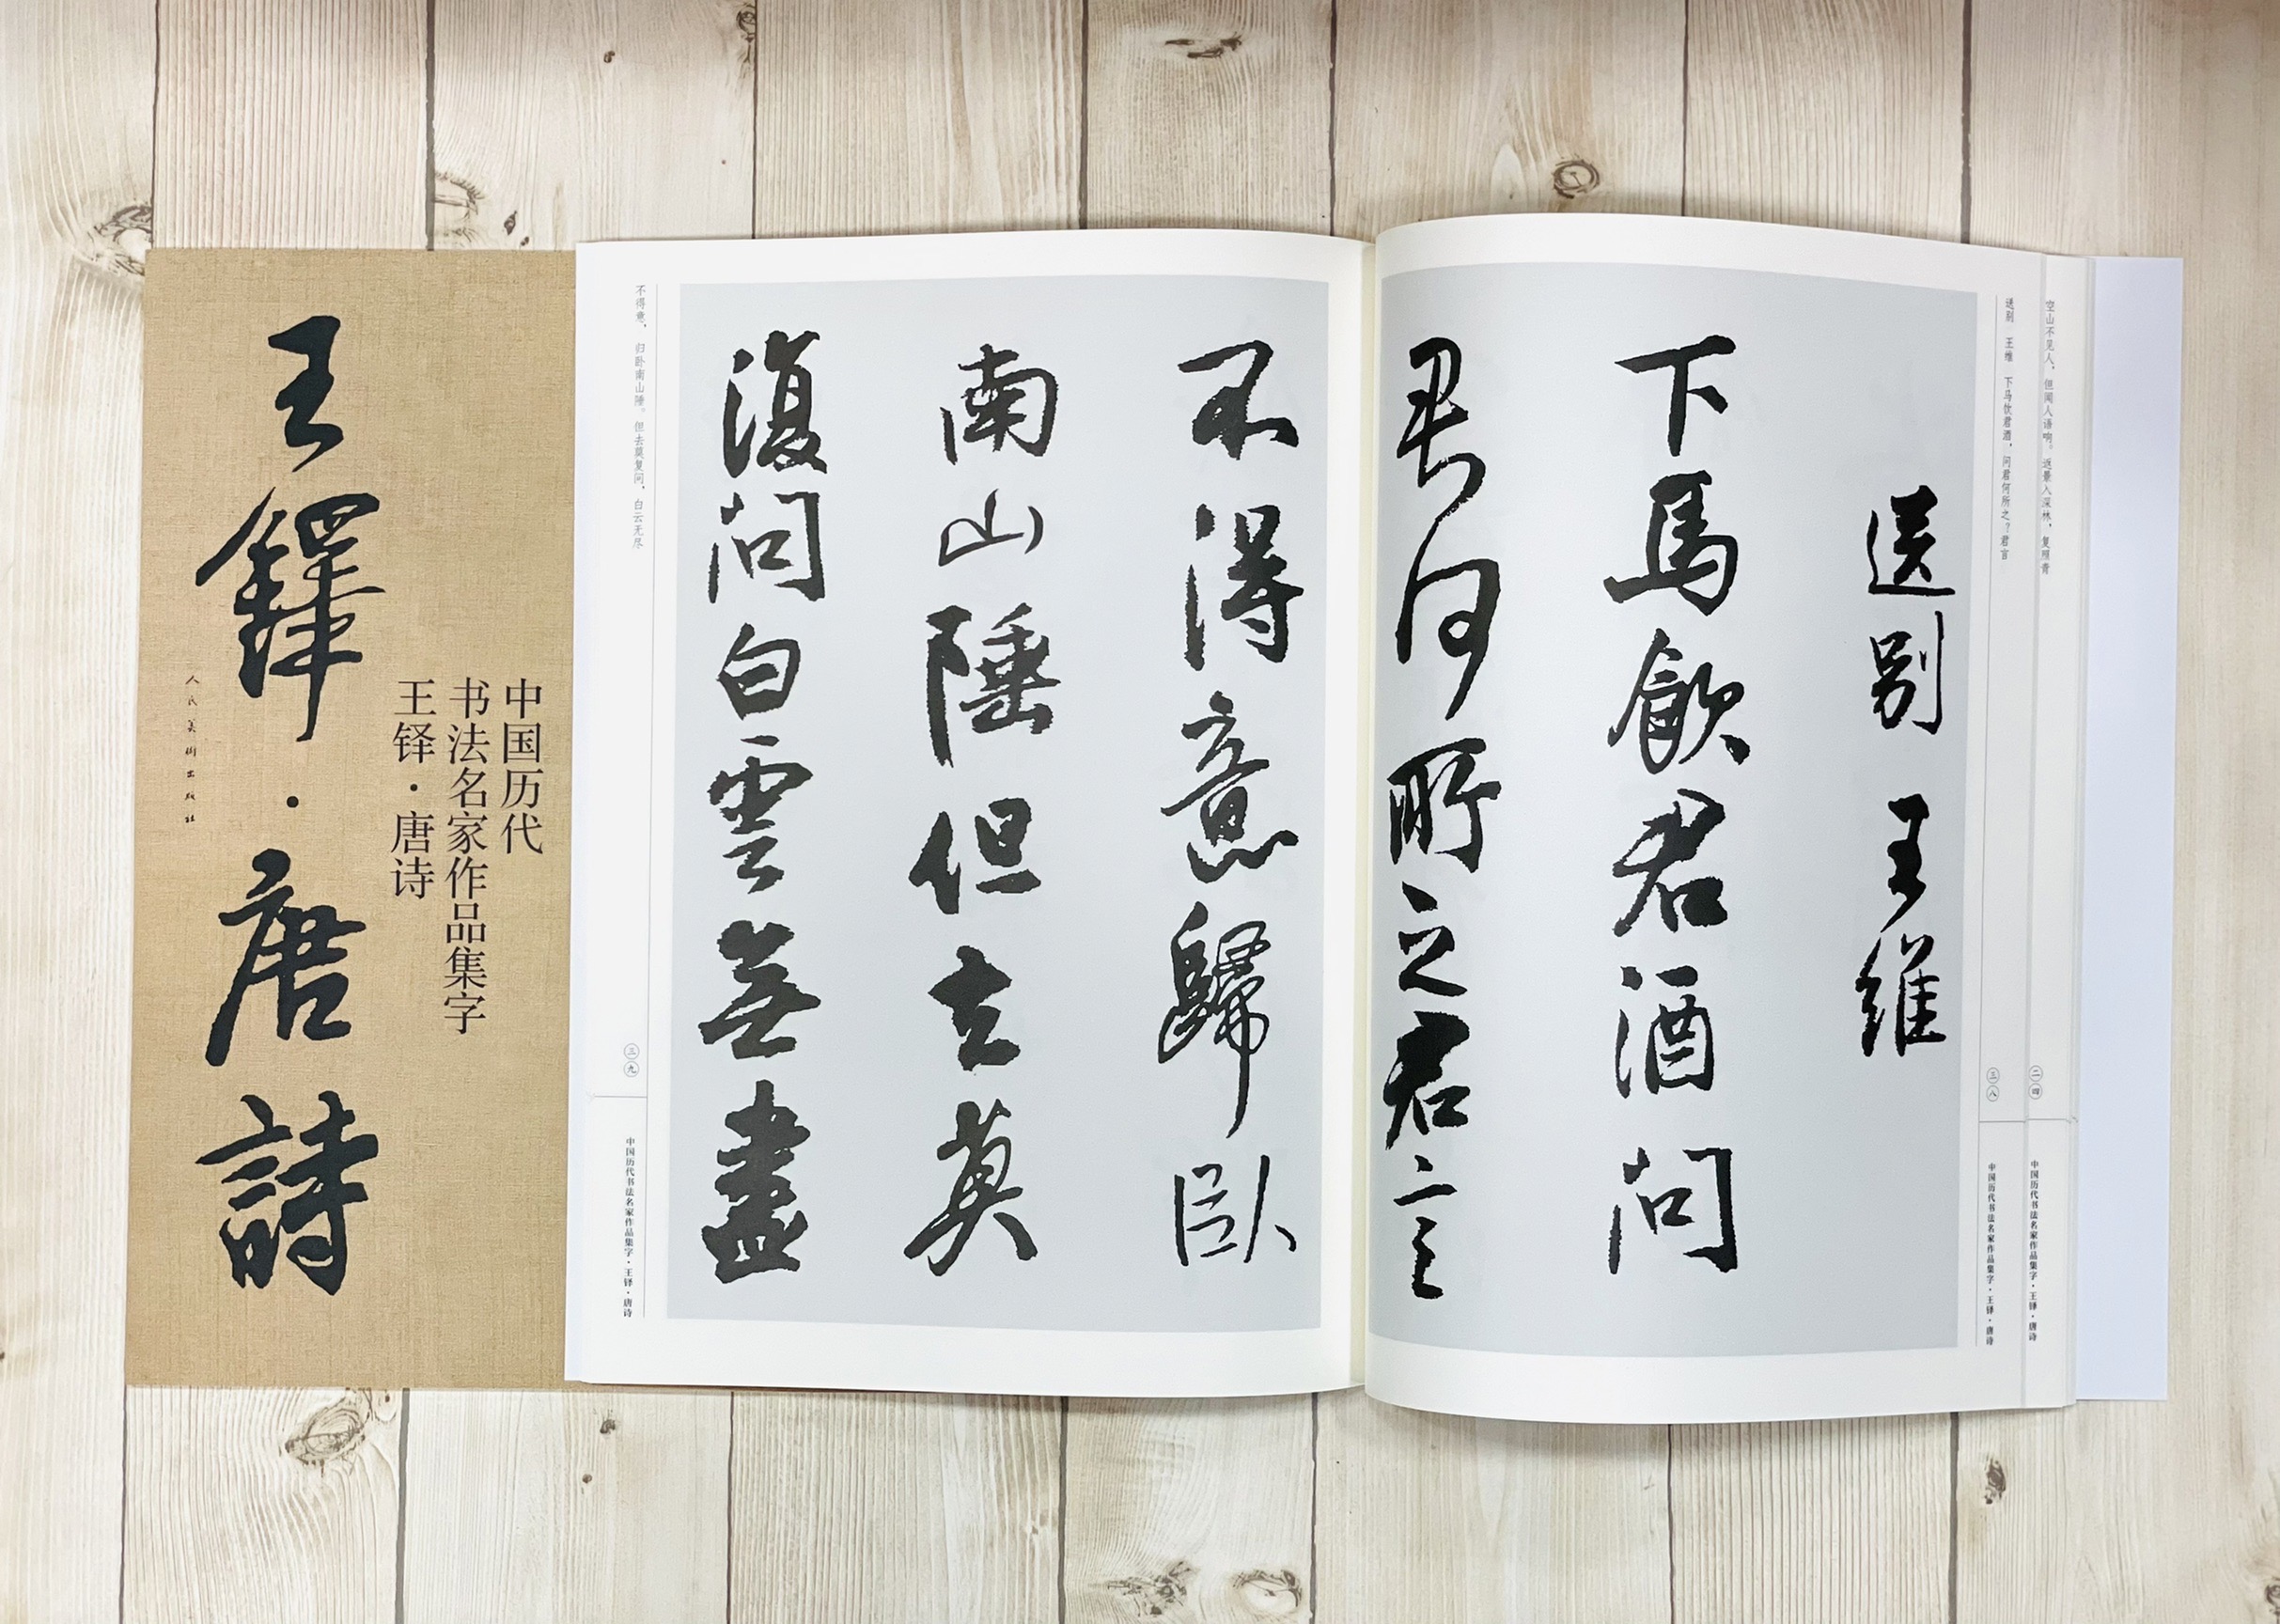 王鐸·唐詩
中国历代
书法名家作品集字
王铎·唐诗
人民美術出版社
空山不见人，但闻人语响。返景入深林，复照青
二四
中国历代书法名家作品集字·王铎·唐诗
送别 王维 下马饮君酒，问君何所之？君言
三八
中国历代书法名家作品集字·王铎·唐诗
送别 王維
下馬飲君酒問
君何所之君言
不得意歸臥
南山陲但去莫
復問白雲無盡
不得意，归卧南山陲。但去莫复问，白云无尽
三九
中国历代书法名家作品集字·王铎·唐诗